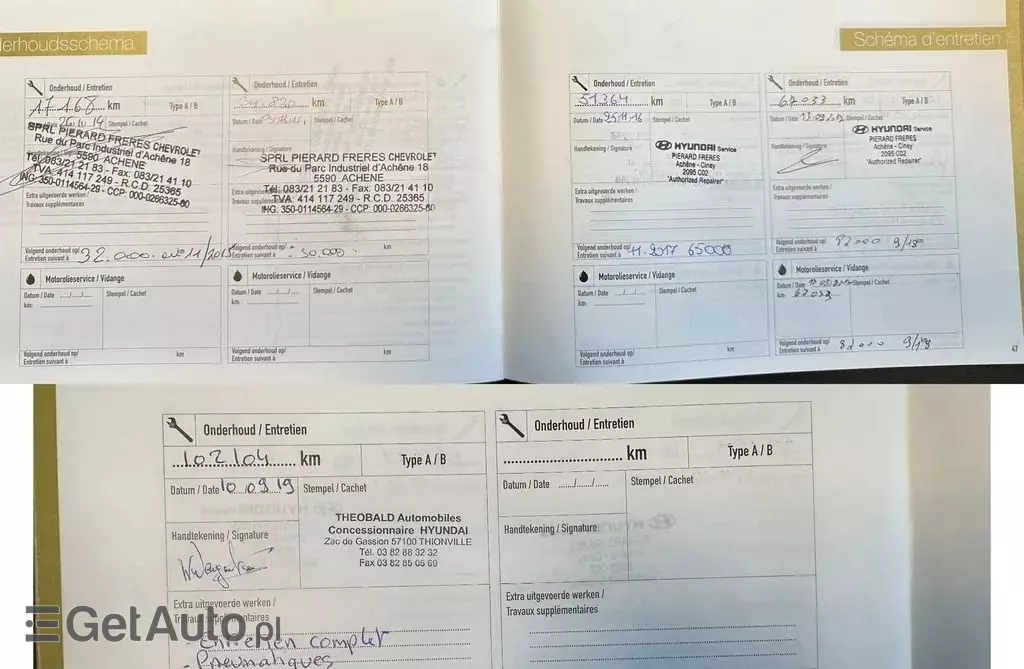 derhoudsschema
Schéma d'entretien
Onderhoud / Entretien
17 168 km Type A / B
Stempel / Cachet
SPRL PIERARD FRERES CHEVROLET
Rue du Parc Industriel d'Achêne 18
5590 ACHENE
Tél. 083/21 21 83 - Fax: 083/21 41 10
TVA: 414 117 249 - R.C.D. 25365
ING: 350-0114564-29 - CCP: 000-0266325-60
Extra uitgevoerde werken /
Travaux supplémentaires
Volgend onderhoud op/
Entretien suivant à
32.000. 11/2015
Motorolieservice / Vidange
Datum / Date Stempel / Cachet
km:
Volgend onderhoud op/
Entretien suivant à
km
Onderhoud / Entretien
km Type A / B
Datum / Date Stempel / Cachet
Handtekening / Signature
SPRL PIERARD FRERES CHEVROLET
Rue du Parc Industriel d'Achêne 18
5590 ACHENE
Tél. 083/21 21 83 - Fax: 083/21 41 10
TVA: 414 117 249 - R.C.D. 25365
ING: 350-0114564-29 - CCP: 000-0266325-60
Extra uitgevoerde werken /
Travaux supplémentaires
Volgend onderhoud op/
Entretien suivant à
50.000 km
Motorolieservice / Vidange
Datum / Date Stempel / Cachet
km:
Volgend onderhoud op/
Entretien suivant à
km
Onderhoud / Entretien
51364 km Type A / B
Datum / Date Stempel / Cachet
Handtekening / Signature
HYUNDAI Service
PIERARD FRERES
Achêne - Ciney
2095 C02
"Authorized Repairer"
Extra uitgevoerde werken /
Travaux supplémentaires
Volgend onderhoud op/
Entretien suivant à
11.2017 65000
Motorolieservice / Vidange
Datum / Date Stempel / Cachet
km:
Volgend onderhoud op/
Entretien suivant à
km
Onderhoud / Entretien
67033 km Type A / B
Datum / Date Stempel / Cachet
Handtekening / Signature
HYUNDAI Service
PIERARD FRERES
Achêne - Ciney
2095 C02
"Authorized Repairer"
Extra uitgevoerde werken /
Travaux supplémentaires
Volgend onderhoud op/
Entretien suivant à
82000 9/18 km
Motorolieservice / Vidange
Datum / Date Stempel / Cachet
km: 67033
Volgend onderhoud op/
Entretien suivant à
82000 9/18
47
Onderhoud / Entretien
102104 km Type A / B
Datum / Date 10 09 19 Stempel / Cachet
Handtekening / Signature
THEOBALD Automobiles
Concessionnaire HYUNDAI
Zac de Gassion 57100 THIONVILLE
Tél. 03 82 88 32 32
Fax 03 82 85 05 69
Extra uitgevoerde werken /
Travaux supplémentaires
- Entretien complet
- Pneumatiques
Onderhoud / Entretien
km Type A / B
Datum / Date Stempel / Cachet
Handtekening / Signature
Extra uitgevoerde werken /
Travaux supplémentaires
GetAuto.pl